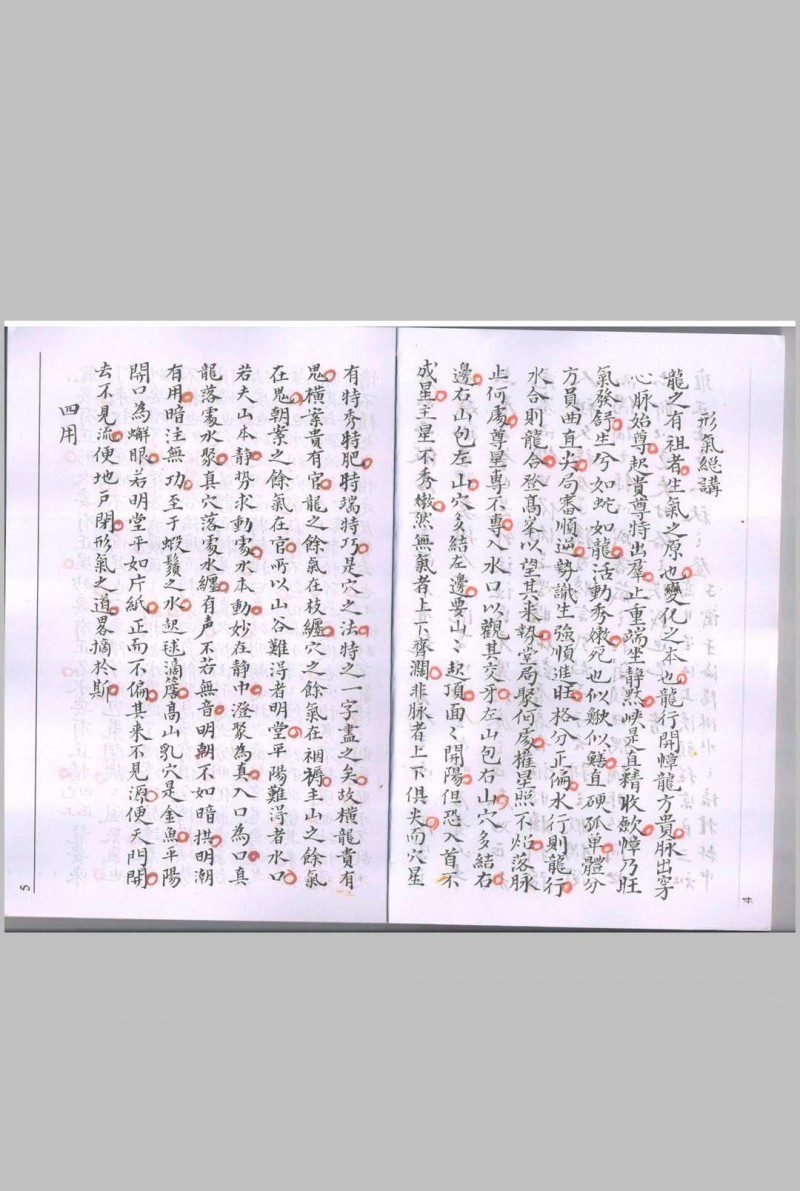 形氣總講
龍之有祖者生氣之原也變化之本也龍行開幛龍方貴脉出穿
心脉始尊起貴尊特出羣止重端坐静㸃峽是直精收歛幛乃旺
氣發舒生兮如蛇如龍活動秀嫩死也似鰍似鱔直硬孤單體分
方員曲直尖局審順逆勢識生強順進旺格分正偏水行則龍行
水合則龍合登髙峯以望其来勢堂局聚何處權星照不熖落脉
止何處尊星專不專入水口以觀其交牙左山包右山穴多結右
邊右山包左山穴多結左邊要山〻起頂面〻開陽但恐入首不
成星主星不秀嫩然無氣者上下齊濶非脉者上下俱尖而穴星
有特秀特肥特端特巧是穴之法特之一字盡之矣故橫龍貴有
鬼橫案貴有官龍之餘氣在枝纏穴之餘氣在裀褥主山之餘氣
在鬼朝案之餘氣在官所以山谷難淂者明堂平陽難淂者水口
若夫山本静勢求動處水本動妙在静中澄聚為真入口為口真
龍落處水聚真穴落處水纏有声不若無音明朝不如暗拱明潮
有用暗注無功至于蝦鬚之水起球滴簷髙山乳穴是金魚平陽
開口為蠏眼若明堂平如片紙正而不偏其来不見源便天門開
去不見流便地户閉形氣之道畧摘於斯
四用
4
5